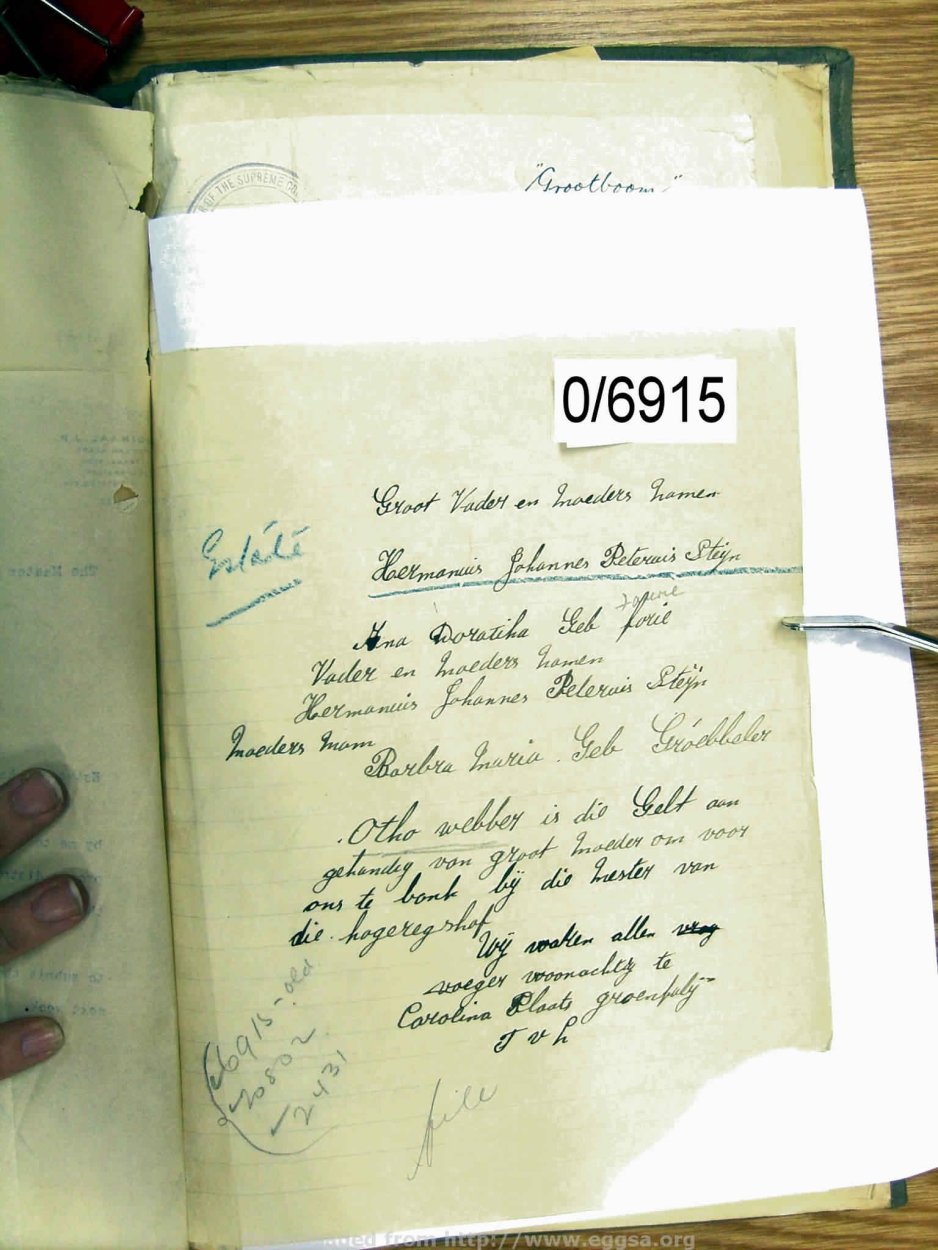 OF THE SUPREME CO
"Grootboom"
0/6915
Groot Vader en moeders namen
Estate
Hermanus Johannes Peterus Steÿn
Ana Doratiha Geb forie
Vader en moeders namen
Hermanus Johannes Peterus Steÿn
moeders mam
Barbra maria. Geb Gróebbeler
Otho webber is die Gelt aan
gehandig van groot moeder om voor
ons te bank bÿ die mester van
die hogeregshof
Wÿ waken allen vrog
vroeger woonachtig te
Carolina Plaats groenfalÿ-
T v L
6915-old
20802
2431
file
The Master
from http://www.eggsa.org